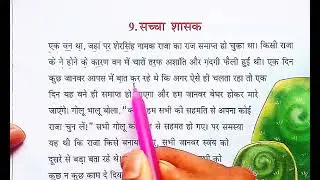 9. सच्चा शासक
एक वन था, जहां पर शेरसिंह नामक राजा का राज समाप्त हो चुका था। किसी राजा
के ने होने के कारण वन में चारों तरफ अशांति और गंदगी फैली हुई थी। एक दिन
कुछ जानवर आपस में बात कर रहे थे कि अगर ऐसे ही चलता रहा तो एक
दिन यह वन ही समाप्त हो जाएगा और हम जानवर बेघर होकर मारे
जाएंगे। गोलू भालू बोला, "क्यों हम सभी को सहमति से अपना कोई
राजा चुन लें।" सभी गोलू की बात से सहमत हो गए। पर समस्या
यह थी कि राजा किसे बनाया जाए, सभी जानवर स्वयं को
दूसरे से बड़ा बता रहे थे।
कुछ न कुछ काम दे दिया